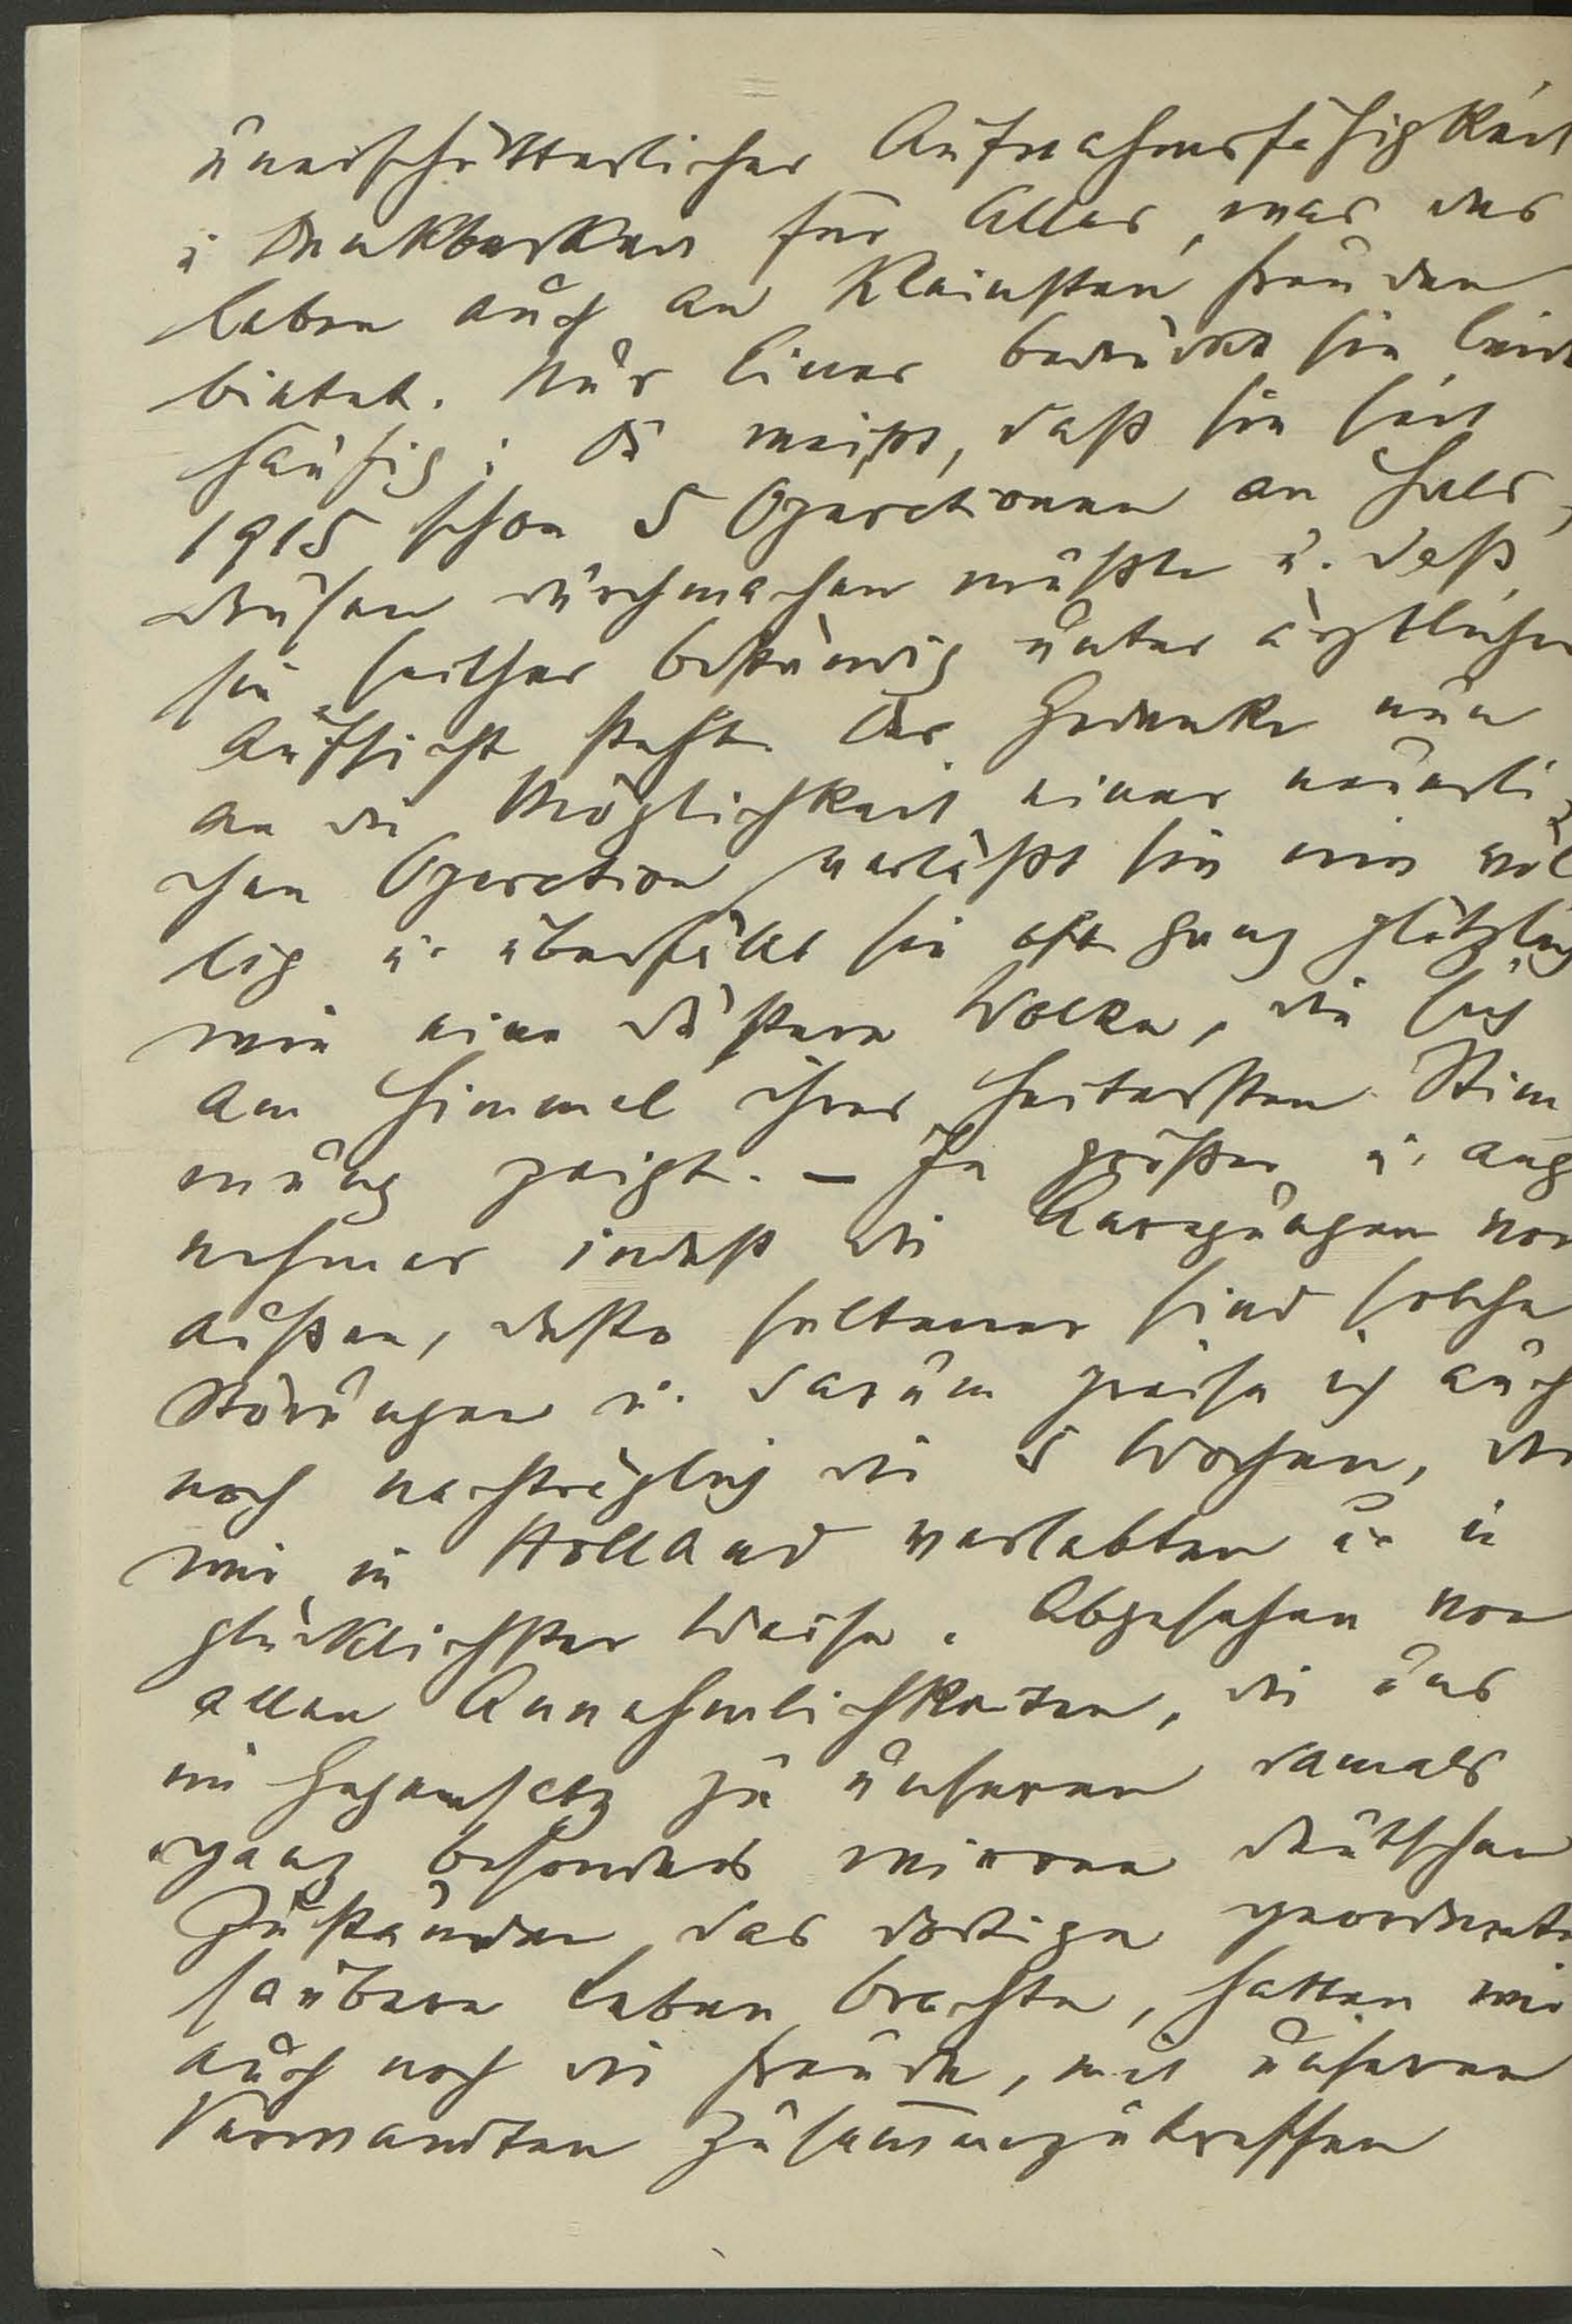 unerschütterlicher Aufnahmsfähigkeit
u Dankbarkeit für Alles, was das
Leben auch an kleinsten Freuden
bietet. Nur Eines bedrückt sie leid
häufig: Du weißt, daß sie seit
1915 schon 5 Operationen an Hals,
drüsen durchmachen mußte u. daß
sie seither beständig unter ärztlicher
Aufsicht steht. Der Gedanke nun
an die Möglichkeit einer neuerli,
chen Operation verläßt sie nie völ
lig u. überfällt sie oft ganz plötzlich
wie eine düstere Wolke, die sich
am Himmel ihrer heitersten Stim
mung zeigt. – Je größer u. ange
nehmer indeß die Anregungen von
außen, desto seltener sind solche
Störungen u. darum preise ich auch
noch nachträglich die 5 Wochen, die
wir in Holland verlebten u. in
glücklichster Weise. Abgesehen von
allen Annehmlichkeiten, die uns
im Gegensatz zu unseren damals
ganz besonders wirren deutschen
Zuständen das dortige geordnete
saubere Leben brachte, hatten wir
auch noch die Freude, mit unseren
Verwandten zusam̅enzutreffen